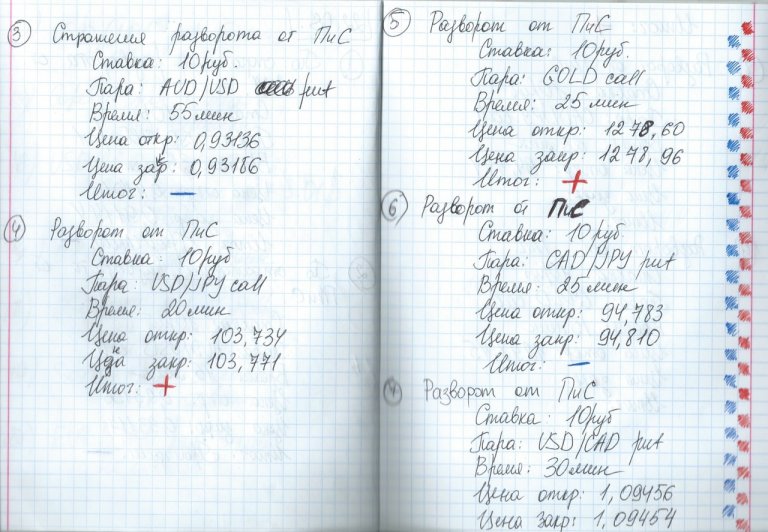 ③ Стратегия разворота от ПиС
Ставка: 10руб.
Пара: AUD/USD put
Время: 55мин
Цена откр: 0,93136
Цена закр: 0,93186
Итог: —
④ Разворот от ПиС
Ставка: 10руб
Пара: USD/JPY call
Время: 20мин
Цена откр: 103,734
Цена закр: 103,771
Итог: +
⑤ Разворот от ПиС
Ставка: 10руб.
Пара: GOLD call
Время: 25мин
Цена откр: 1278,60
Цена закр: 1278,96
Итог: +
⑥ Разворот от ПиС
Ставка: 10руб
Пара: CAD/JPY put
Время: 25мин
Цена откр: 94,783
Цена закр: 94,810
Итог: —
Разворот от ПиС
Ставка: 10руб
Пара: USD/CAD put
Время: 30мин
Цена откр: 1,09456
Цена закр: 1,09454